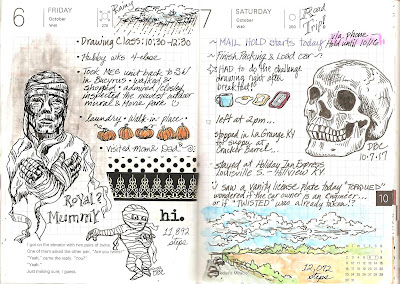 6
FRIDAY
October
Rainy
• Drawing Class: 10:30-12:30
• Hubby wks 4-close
• Took MEG unit back to SW
in Bucyrus - walked &
shopped - admired / closely
inspected the newest addition
mural & More Park ☺
• Laundry - Walk-in-place
• Visited Mom & Dad
Royal?
Mummy
hi.
11,892
steps
DBC
I got on the elevator with two pairs of twins.
One of them asked the other pair, "Are you twins?"
"Yeah," came the reply. "You?"
"Yeah."
Just making sure, I guess.
7
SATURDAY
October
Road
Trip!
~ MAIL HOLD starts today
via phone
Hold until 10/16
~ Finish Packing & Load car ~
☆ HAD to do the challenge
drawing right after
breakfast!
left at 2pm...
stopped in LaGrange KY
for supper at
Cracker Barrel...
stayed at Holiday Inn Express
Louisville S. - Hillview KY
DBC
10•7•17
Saw a vanity license plate today "TORQUED"
wondered if the car owner is an engineer...
or if "TWISTED" was already taken!?
10
12,092
steps